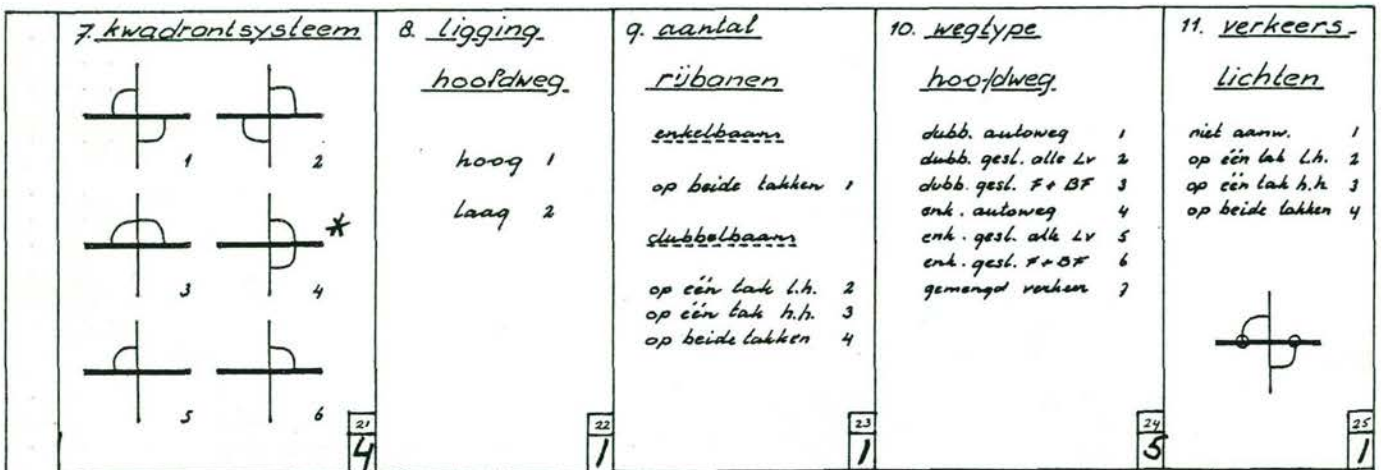 7. kwadrantsysteem
1
2
3
*
4
5
6
21
4
8. ligging
hoofdweg
hoog 1
laag 2
22
1
9. aantal
rijbanen
enkelbaans
op beide takken 1
dubbelbaans
op één tak l.h. 2
op één tak h.h. 3
op beide takken 4
23
1
10. wegtype
hoofdweg
dubb. autoweg 1
dubb. gesl. alle Lv 2
dubb. gesl. F + BF 3
enk. autoweg 4
enk. gesl. alle Lv 5
enk. gesl. F + BF 6
gemengd verkeer 7
24
5
11. verkeers-
lichten
niet aanw. 1
op één tak l.h. 2
op één tak h.h 3
op beide takken 4
25
1